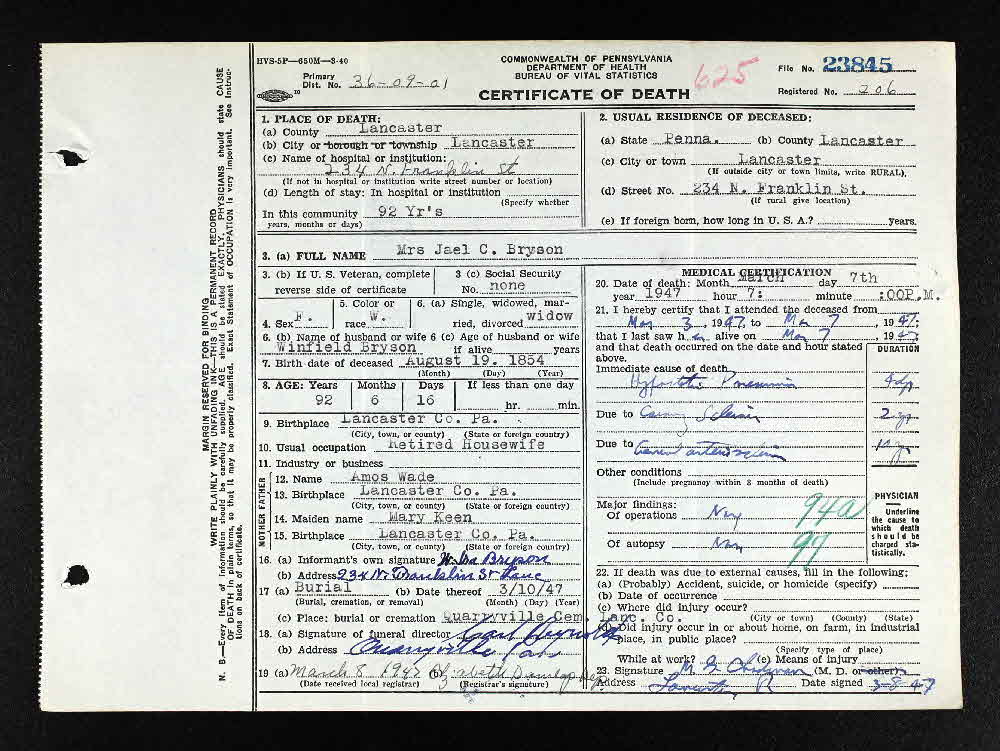 HVS-5P—650M—3-40
COMMONWEALTH OF PENNSYLVANIA
DEPARTMENT OF HEALTH
BUREAU OF VITAL STATISTICS
CERTIFICATE OF DEATH
625
File No. 23845
Primary Dist. No. 36-09-01
Registered No. 206
MARGIN RESERVED FOR BINDING
WRITE PLAINLY WITH UNFADING INK—THIS IS A PERMANENT RECORD
N. B.—Every item of information should be carefully supplied. AGE should be stated EXACTLY. PHYSICIANS should state CAUSE
OF DEATH in plain terms, so that it may be properly classified. Exact Statement of OCCUPATION is very important. See Instruc-
tions on back of certificate.
1. PLACE OF DEATH:
(a) County Lancaster
(b) City or borough or township Lancaster
(c) Name of hospital or institution:
234 N. Franklin St
(If not in hospital or institution write street number or location)
(d) Length of stay: In hospital or institution
(Specify whether
In this community 92 Yr's
years, months or days)
2. USUAL RESIDENCE OF DECEASED:
(a) State Penna. (b) County Lancaster
(c) City or town Lancaster
(If outside city or town limits, write RURAL),
(d) Street No. 234 N. Franklin St.
(If rural give location)
(e) If foreign born, how long in U. S. A.? years.
3. (a) FULL NAME Mrs Jael C. Bryson
3. (b) If U. S. Veteran, complete
reverse side of certificate
3 (c) Social Security
No. none
4. Sex F.
5. Color or
race W.
6. (a) Single, widowed, mar-
ried, divorced widow
6. (b) Name of husband or wife 6 (c) Age of husband or wife
Winfield Bryson if alive years
7. Birth date of deceased August 19. 1854
(Month) (Day) (Year)
8. AGE: Years Months Days If less than one day
92 6 16 hr. min.
9. Birthplace Lancaster Co. Pa.
(City, town, or county) (State or foreign country)
10. Usual occupation Retired Housewife
11. Industry or business
FATHER
12. Name Amos Wade
13. Birthplace Lancaster Co. Pa.
(City, town, or county) (State or foreign country)
MOTHER
14. Maiden name Mary Keen
15. Birthplace Lancaster Co. Pa.
(City, town, or county) (State or foreign country)
16. (a) Informant's own signature Bryson
(b) Address 234 N. Franklin St Lanc
17 (a) Burial (b) Date thereof 3/10/47
(Burial, cremation, or removal) (Month) (Day) (Year)
(c) Place: burial or cremation Quarryville Cem. Lanc. Co.
18. (a) Signature of funeral director
(b) Address Quarryville
19 (a) March 8 1947 (b) Dunlap
(Date received local registrar) (Registrar's signature)
MEDICAL CERTIFICATION
20. Date of death: Month March day 7th
year 1947 hour 7: minute :00P.M.
21. I hereby certify that I attended the deceased from
Mar 3, 1947, to Mar 7, 1947;
that I last saw her alive on Mar 7, 1947
and that death occurred on the date and hour stated
above.
DURATION
Immediate cause of death
Hypostatic Pneumonia
Due to Sclerosis
Due to General arteriosclerosis
Other conditions
(Include pregnancy within 3 months of death)
Major findings:
Of operations
94a
Of autopsy
97
PHYSICIAN
Underline
the cause to
which death
should be
charged sta-
tistically.
22. If death was due to external causes, fill in the following:
(a) (Probably) Accident, suicide, or homicide (specify)
(b) Date of occurrence
(c) Where did injury occur?
(City or town) (County) (State)
(d) Did injury occur in or about home, on farm, in industrial
place, in public place?
(Specify type of place)
While at work? (e) Means of injury
23. Signature (M. D. or other)
Address Lancaster Date signed 3-8-47